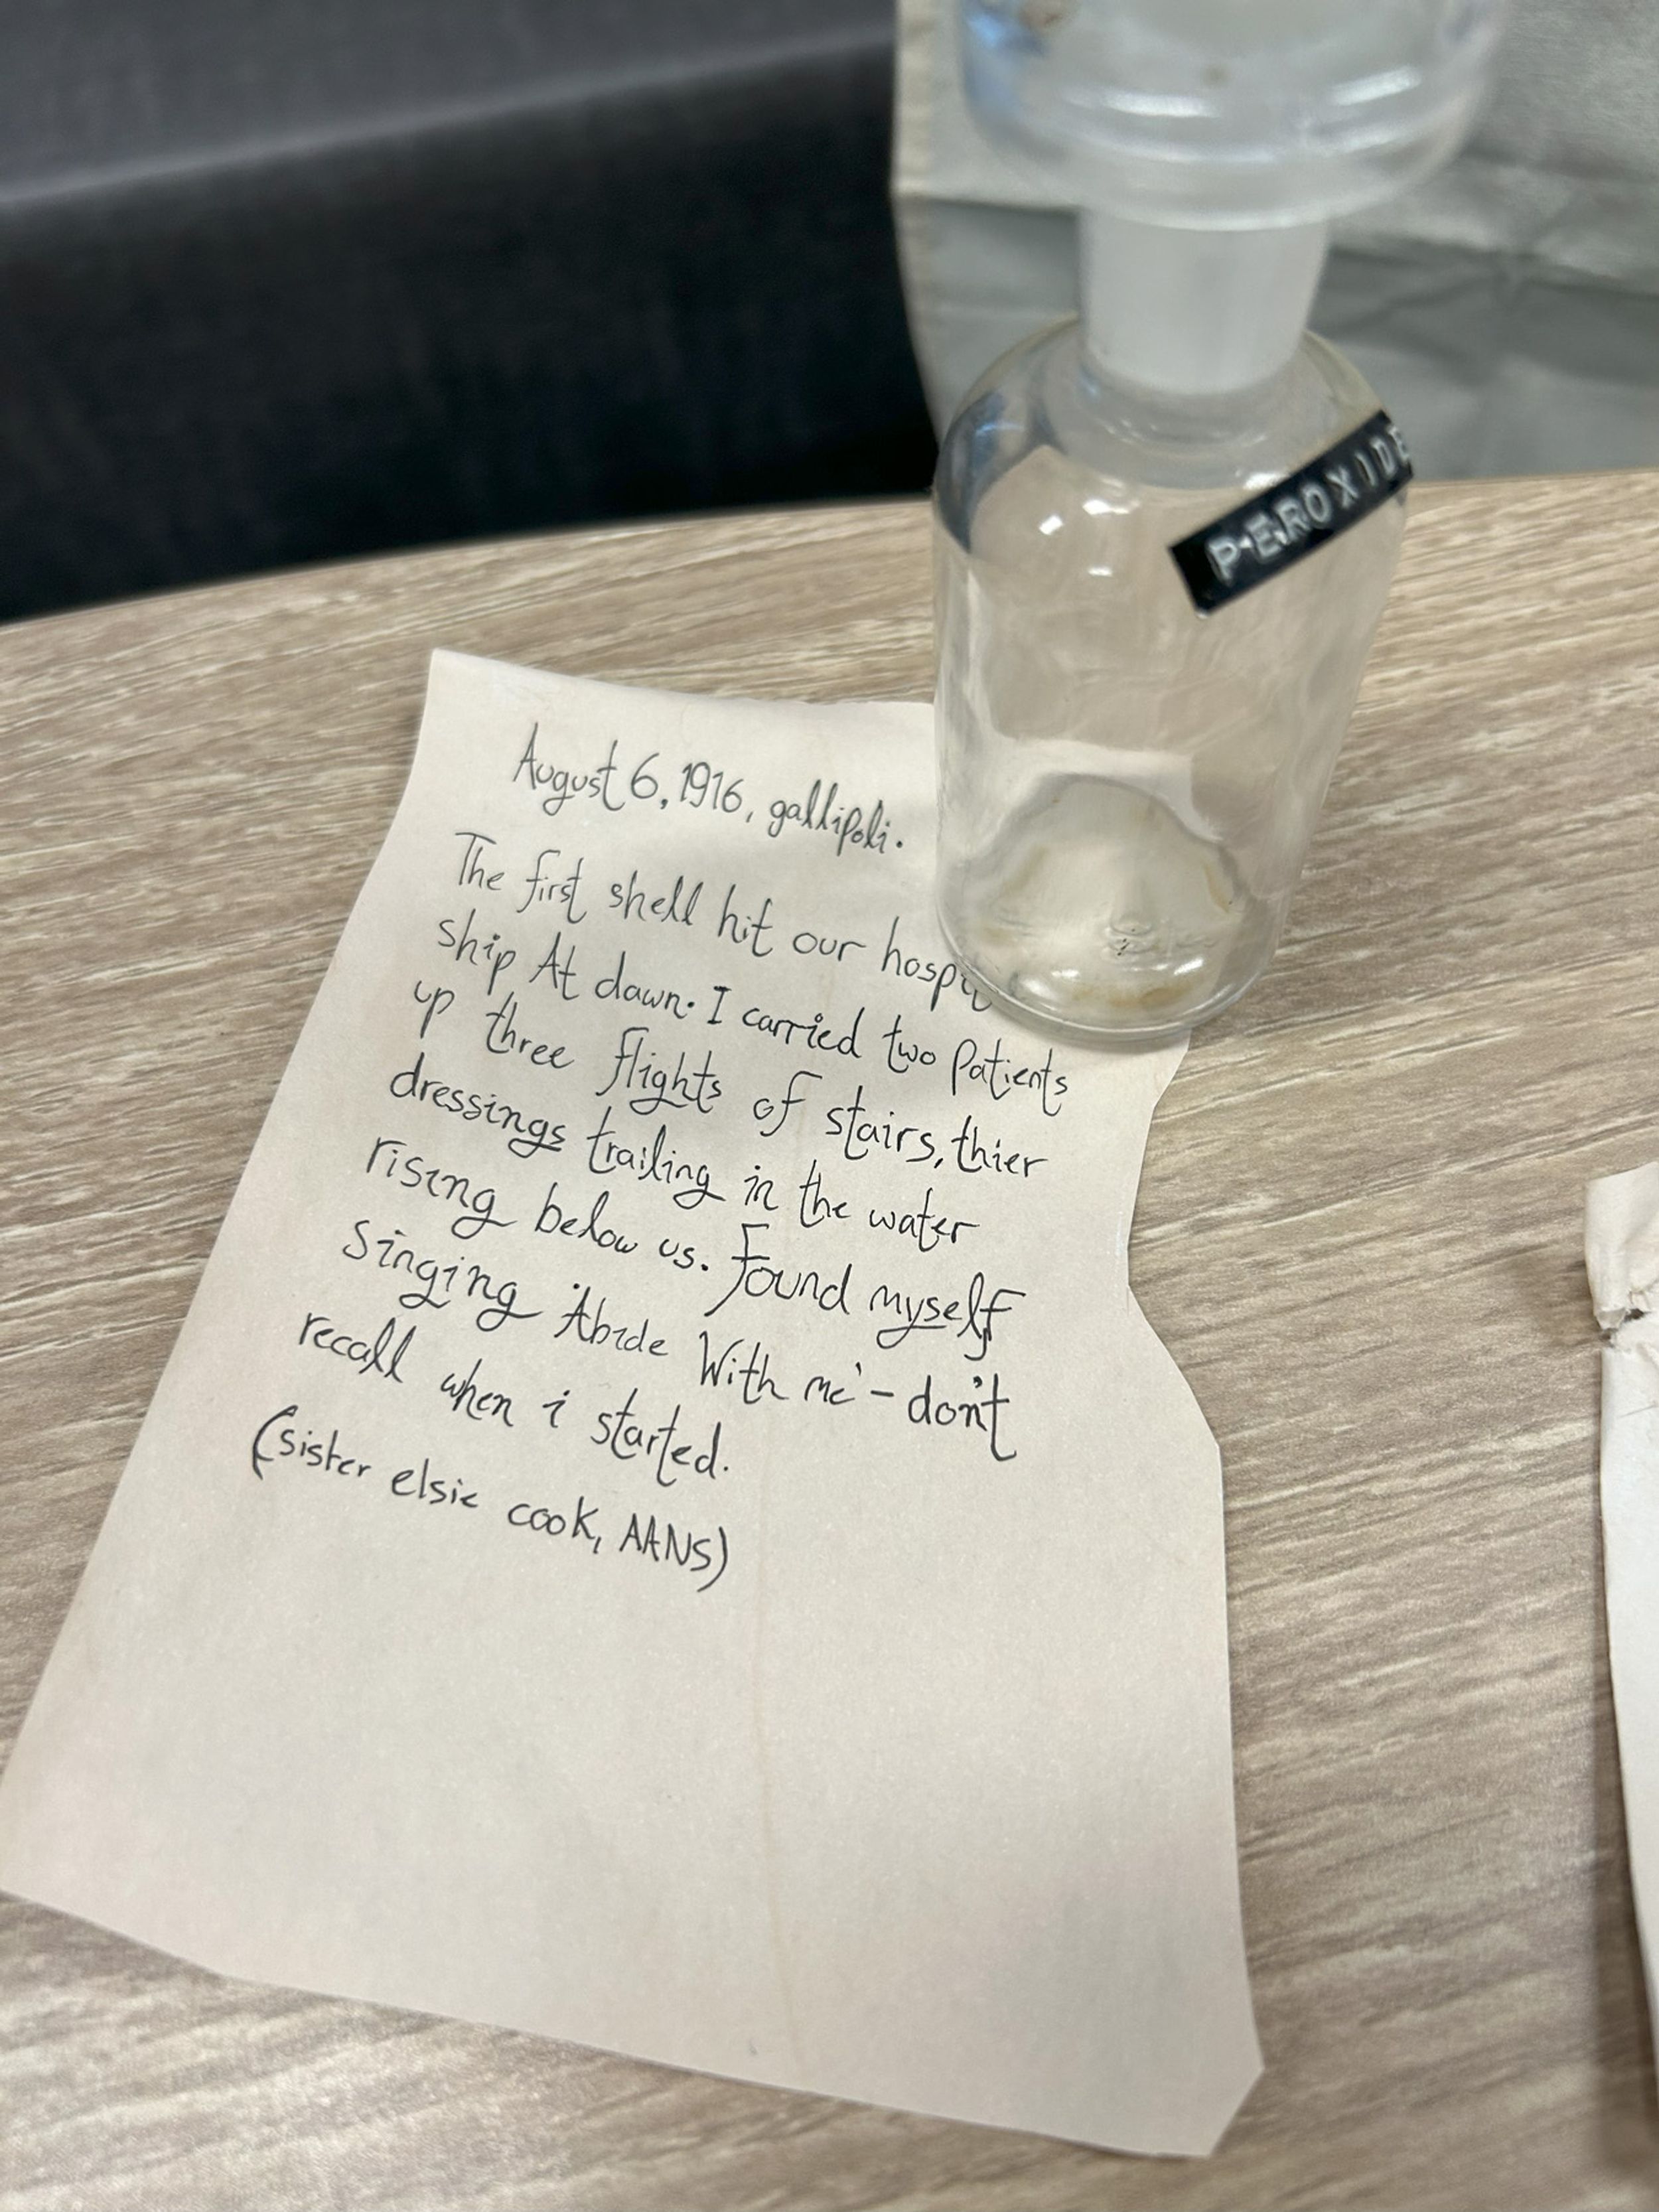 PEROXIDE
August 6, 1916, gallipoli.
The first shell hit our hospit
ship At dawn. I carried two patients
up three flights of stairs, thier
dressings trailing in the water
rising below us. Found myself
singing 'Abide With me' - don't
recall when i started.
(sister elsie cook, AANS)